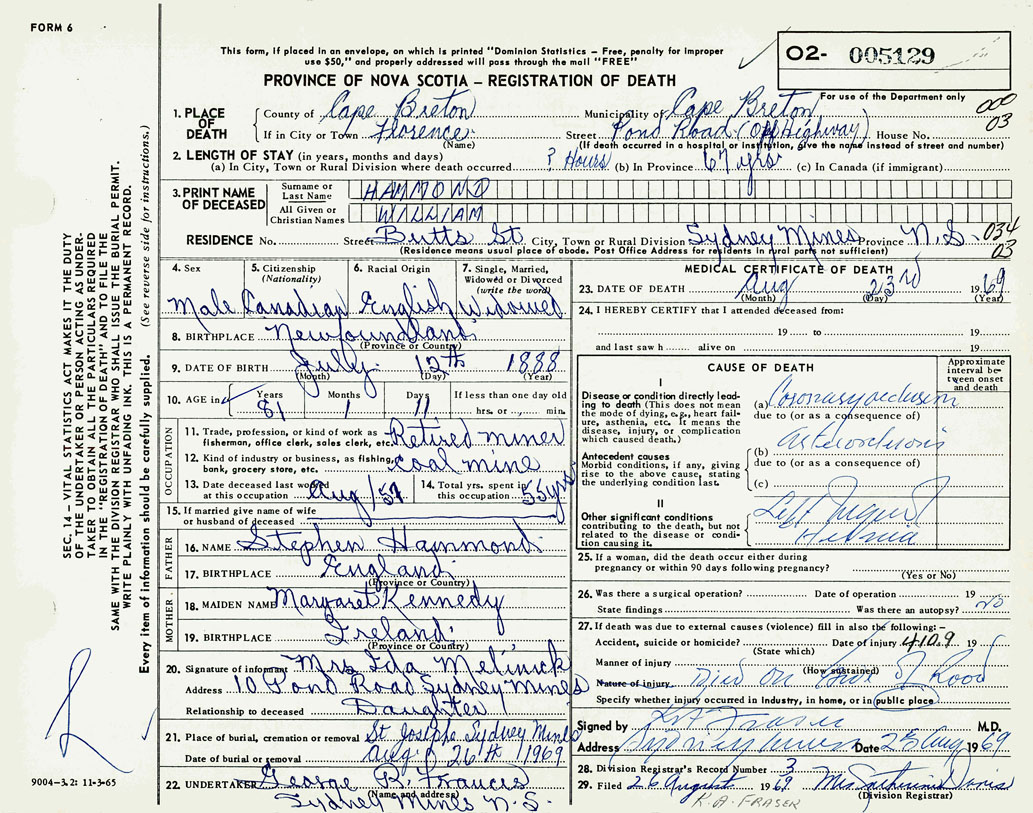 FORM 6
This form, if placed in an envelope, on which is printed "Dominion Statistics – Free, penalty for improper
use $50," and properly addressed will pass through the mail "FREE"
PROVINCE OF NOVA SCOTIA – REGISTRATION OF DEATH
O2- 005129
For use of the Department only
000
03
1. PLACE OF DEATH County of Cape Breton Municipality of Cape Breton
If in City or Town Florence (Name) Street Pond Road (Off Highway) House No.
(If death occurred in a hospital or institution, give the name instead of street and number)
2. LENGTH OF STAY (in years, months and days)
(a) In City, Town or Rural Division where death occurred ? Hours (b) In Province 67 yrs (c) In Canada (if immigrant)
3. PRINT NAME OF DECEASED Surname or Last Name HAMMOND
All Given or Christian Names WILLIAM
RESIDENCE No. Street Butts St City, Town or Rural Division Sydney Mines Province N.S. 034
(Residence means usual place of abode. Post Office Address for residents in rural parts not sufficient) 03
4. Sex 5. Citizenship (Nationality) 6. Racial Origin 7. Single, Married, Widowed or Divorced (write the word)
Male Canadian English Widowed
8. BIRTHPLACE Newfoundland
(Province or Country)
9. DATE OF BIRTH July 12th 1888
(Month) (Day) (Year)
10. AGE in Years Months Days If less than one day old
81 1 11 hrs. or min.
OCCUPATION
11. Trade, profession, or kind of work as fisherman, office clerk, sales clerk, etc. Retired miner
12. Kind of industry or business, as fishing, bank, grocery store, etc. Coal mine
13. Date deceased last worked at this occupation Aug/57 14. Total yrs. spent in this occupation 55 yrs
15. If married give name of wife or husband of deceased
FATHER
16. NAME Stephen Hammond
17. BIRTHPLACE England
(Province or Country)
MOTHER
18. MAIDEN NAME Margaret Kennedy
19. BIRTHPLACE Ireland
(Province or Country)
20. Signature of informant Mrs Ida
Address 10 Pond Road Sydney Mines
Relationship to deceased Daughter
21. Place of burial, cremation or removal St Josephs Sydney Mines
Date of burial or removal Aug 26th 1969
22. UNDERTAKER George B. Francis
(Name and address)
Sydney Mines N.S.
MEDICAL CERTIFICATE OF DEATH
23. DATE OF DEATH Aug 23rd 1969
(Month) (Day) (Year)
24. I HEREBY CERTIFY that I attended deceased from:
19 to 19
and last saw h alive on 19
CAUSE OF DEATH
Approximate interval between onset and death
I
Disease or condition directly leading to death (This does not mean the mode of dying, e.g., heart failure, asthenia, etc. It means the disease, injury, or complication which caused death.)
(a) Coronary occlusion
due to (or as a consequence of)
Antecedent causes
Morbid conditions, if any, giving rise to the above cause, stating the underlying condition last.
(b)
due to (or as a consequence of)
(c)
II
Other significant conditions contributing to the death, but not related to the disease or condition causing it.
Left Inguinal
Hernia
25. If a woman, did the death occur either during pregnancy or within 90 days following pregnancy?
(Yes or No)
26. Was there a surgical operation? Date of operation 19
State findings Was there an autopsy? no
27. If death was due to external causes (violence) fill in also the following:–
Accident, suicide or homicide? Date of injury 410.9 196
(State which)
Manner of injury
(How sustained)
Nature of injury Died on Road
Specify whether injury occurred in Industry, in home, or in public place
Signed by Fraser M.D.
Address Sydney Mines Date 25 Aug 1969
28. Division Registrar's Record Number 3
29. Filed 26 August 1969 Mrs Davis
(Division Registrar)
K.A. FRASER
SEC. 14 – VITAL STATISTICS ACT MAKES IT THE DUTY
OF THE UNDERTAKER OR PERSON ACTING AS UNDER-
TAKER TO OBTAIN ALL THE PARTICULARS REQUIRED
IN THE "REGISTRATION OF DEATH" AND TO FILE THE
SAME WITH THE DIVISION REGISTRAR WHO SHALL ISSUE THE BURIAL PERMIT.
WRITE PLAINLY WITH UNFADING INK. THIS IS A PERMANENT RECORD.
Every item of information should be carefully supplied. (See reverse side for instructions.)
9004-3.2: 11-3-65